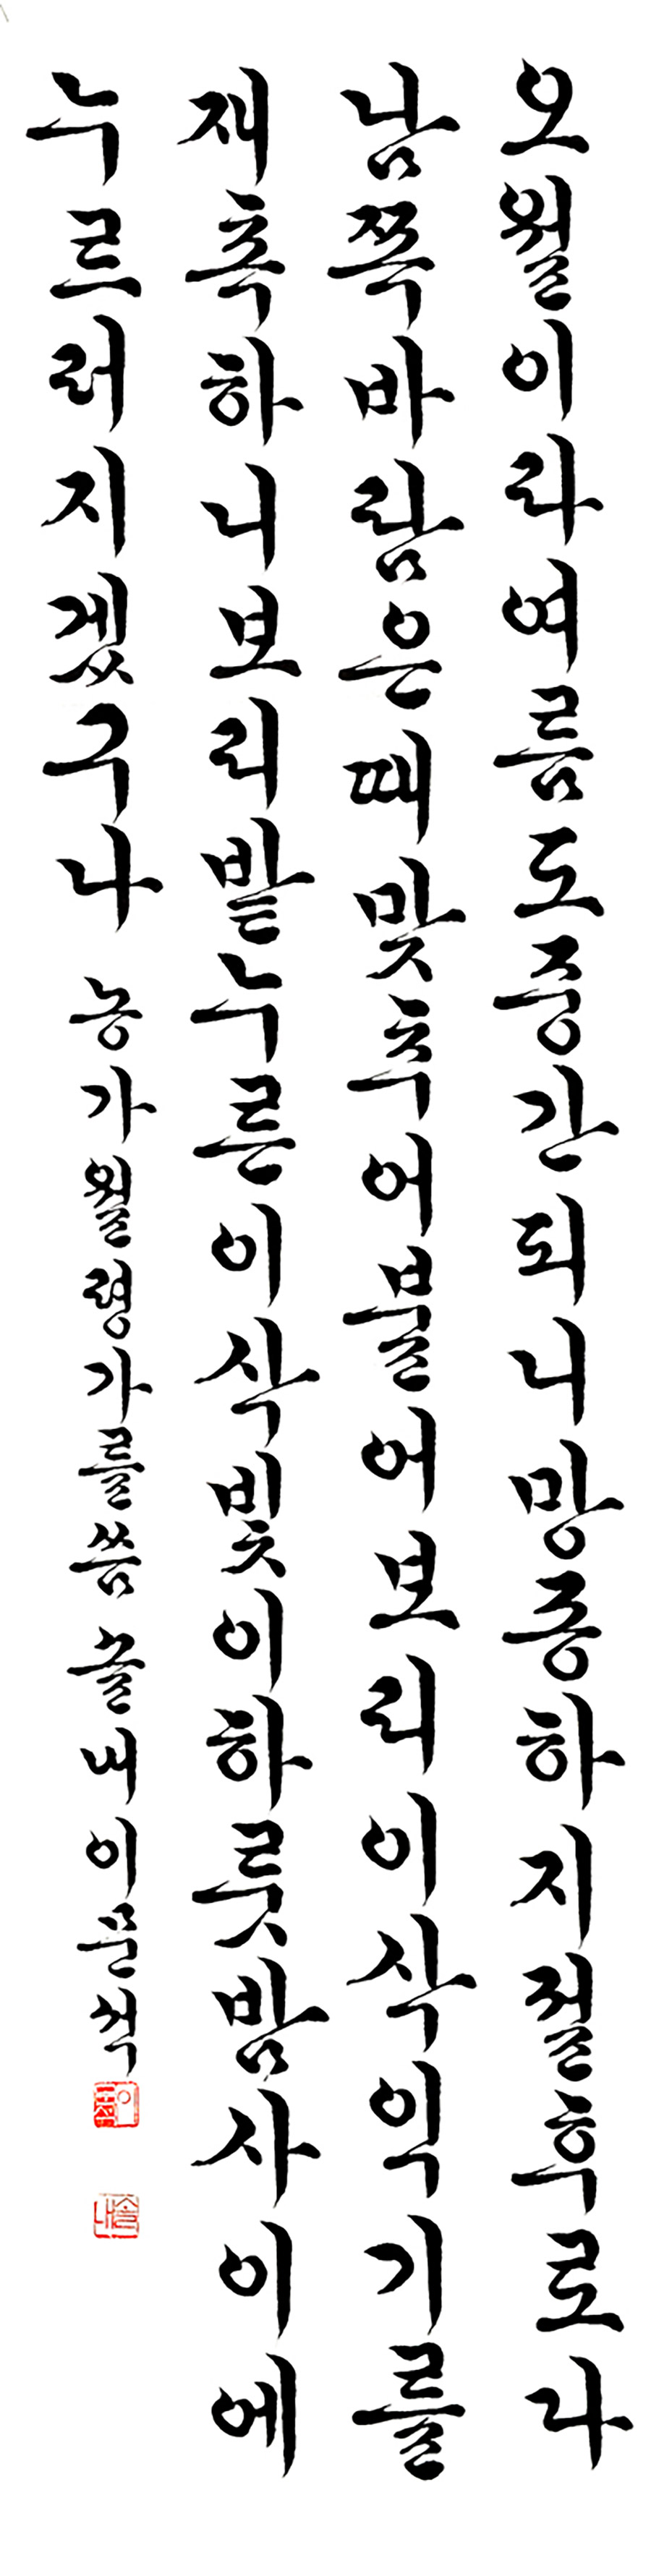 오월이라여름도중간되니망종하지절후로다
남쪽바람은때맞추어불어보리이삭익기를
재촉하니보리밭누른이삭빛이하룻밤사이에
누르러지겠구나 농가월령가를씀 솔내이문석